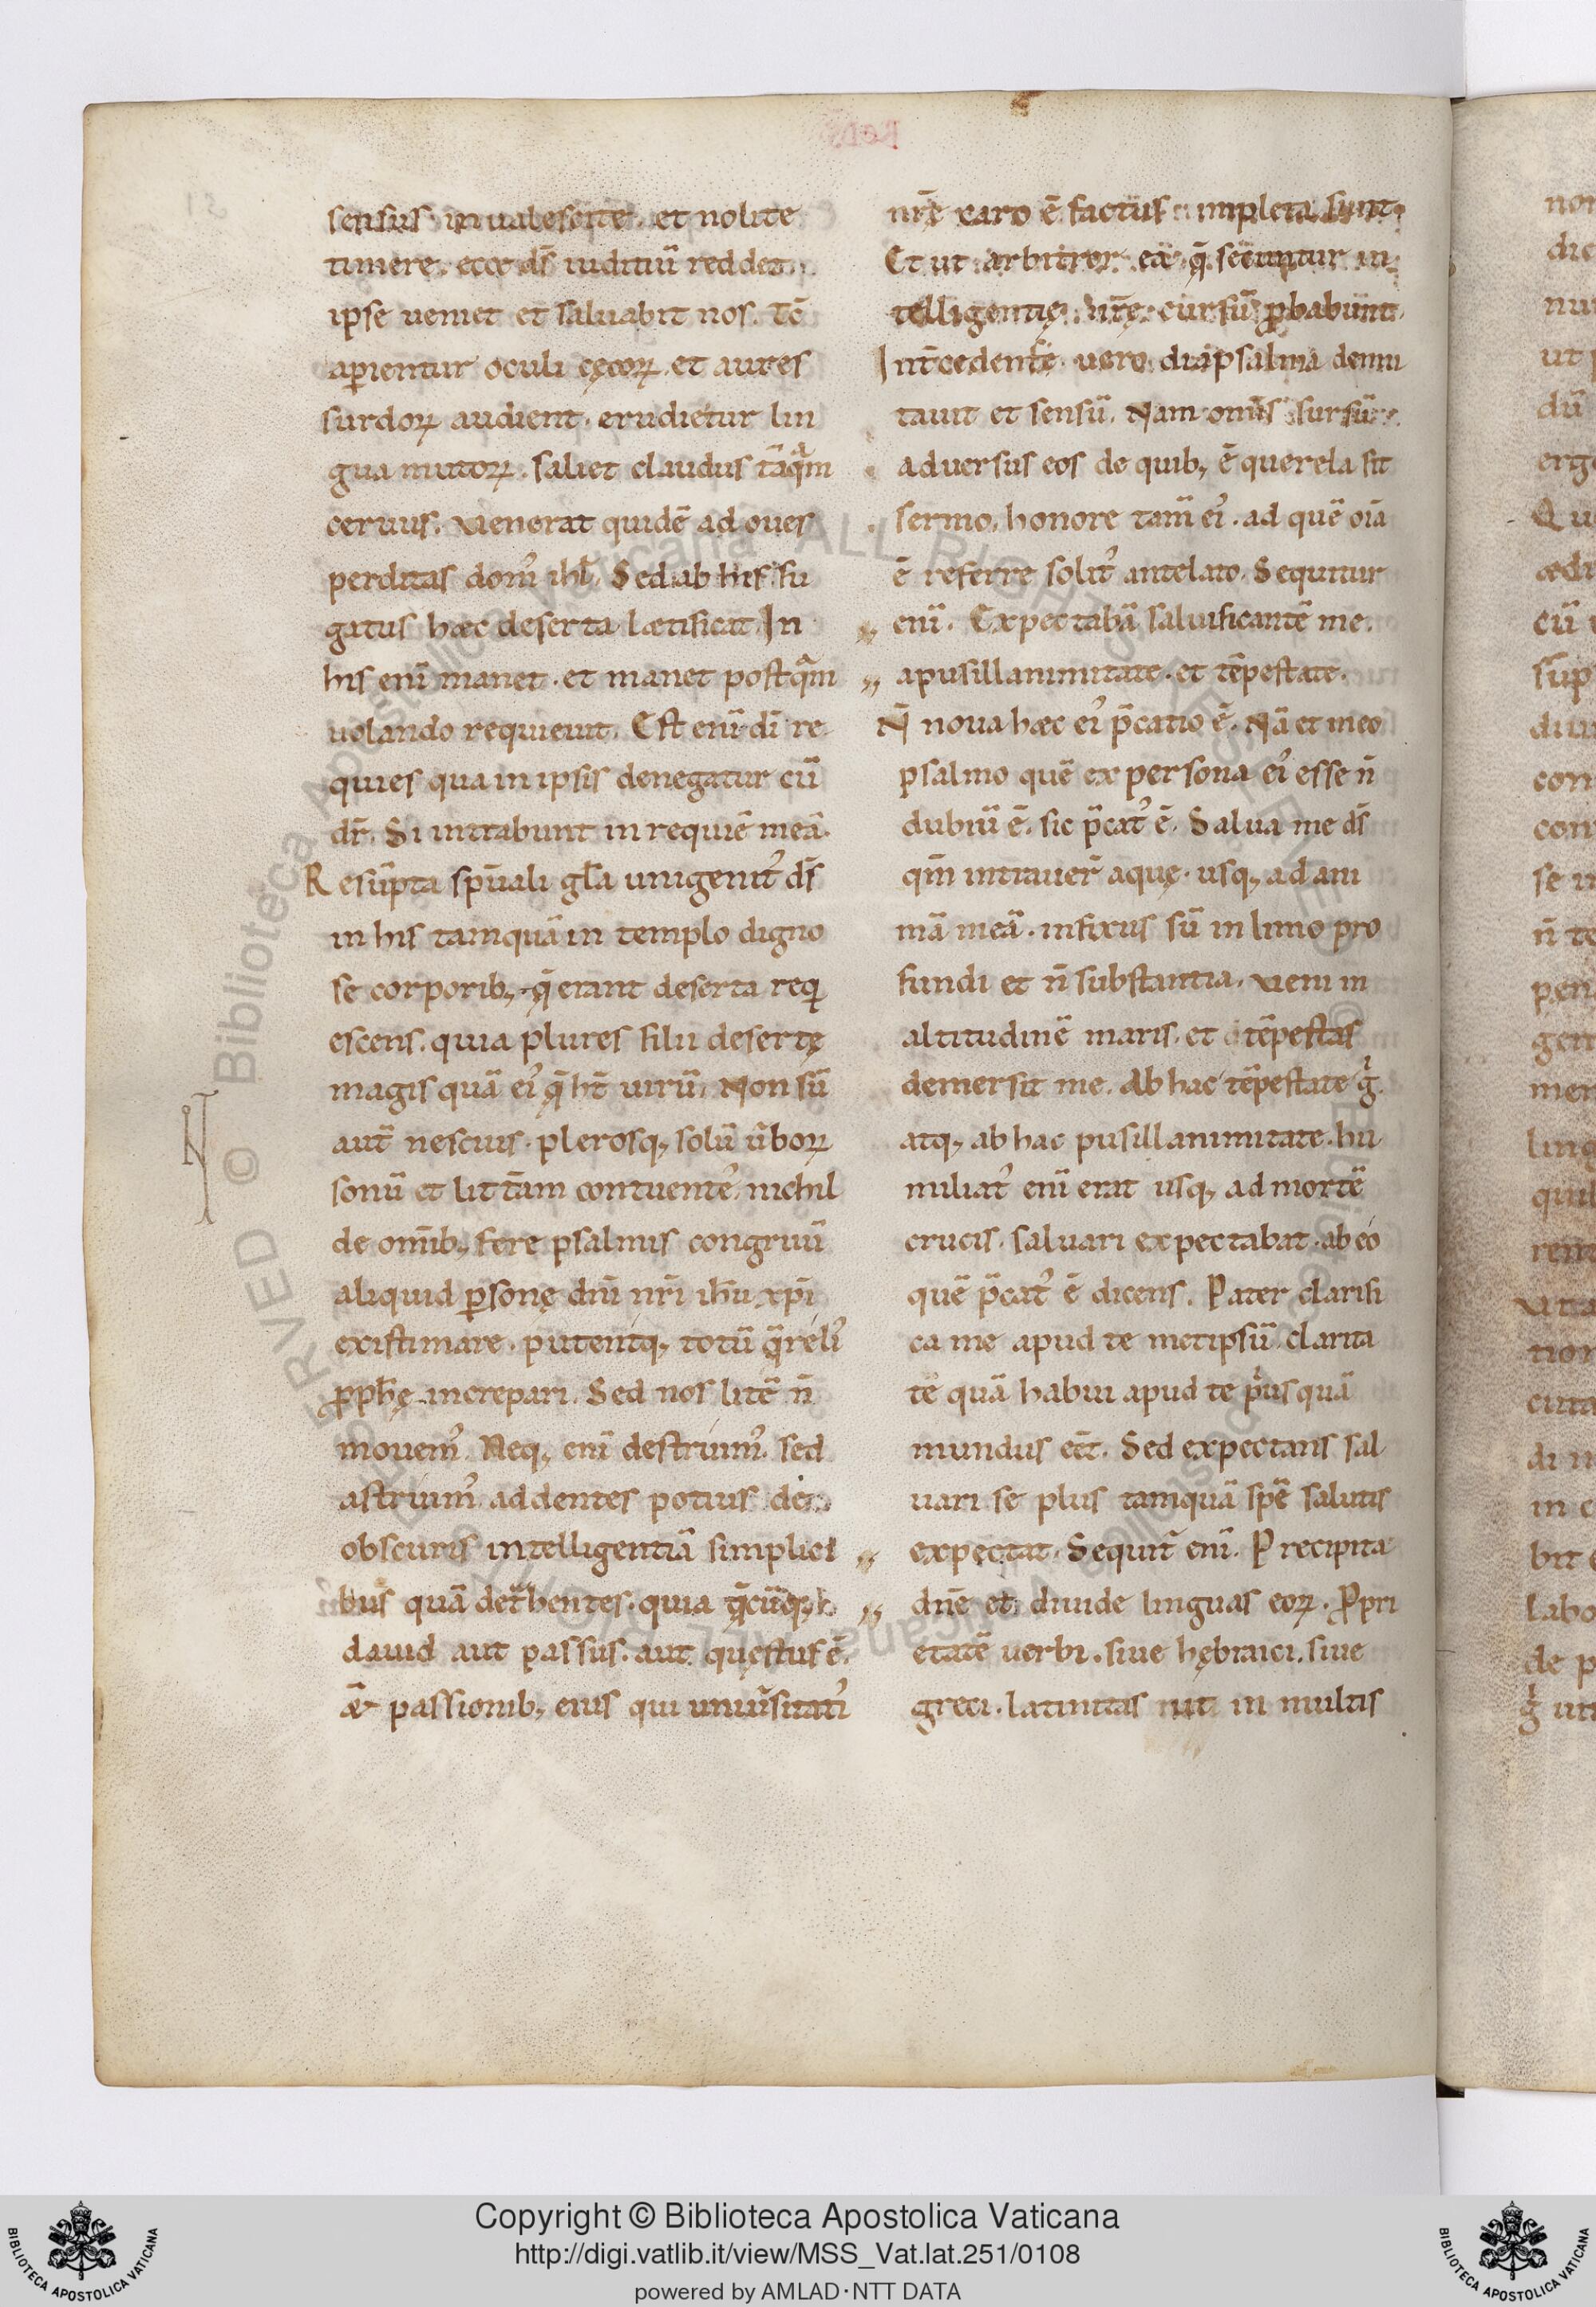 sensus inualescite. et nolite
timere. ecce d̄s iuditiū reddet.
ipse ueniet et saluabit nos. Tc̄
aꝑientur oculi cęcoꝝ. et aures
surdoꝝ audient. erudietur lin
gua mutoꝝ. saliet claudus tāqͣm
ceruus. Venerat quidē ad oues
perditas domꝰ ihl̄. Sed ab his fu
gatus hæc deserta lætificat. In
his eni̅ manet. et manet postqͣm
uolando requieuit. Est eni̅ di̅ re
quies qua in ipsis denegatur cū
dr̄. Si intrabunt in requiē meā.
Resūpta sp̄uali gl̄a unigenitꝰ d̄s
in his tamquā in templo digno
se corporibꝫ. q̄ erant deserta reqi
escens. quia plures filii desertę
magis quā eiꝰ q̄ ht̄ uirū. Non sū
aut̄ nescius. plerosqꝫ solū ūboꝝ
sonū et litt̄am contuenteꝰ. nichil
de om̄ibꝫ fere psalmis congruū
aliquid ꝑsonę dn̄i nr̄i ih̄u xp̄i
existimare. putentqꝫ totū q̄relꝰ
ꝓph̄ę increpari. Sed nos litē n̄
mouemꝰ. Neqꝫ eni̅ destruimꝰ. sed
astruimꝰ addentes potius de
obscuris intelligentiā simplici
bus quā detͣhentes. quia q̄cūqꝫ
dauid aut passus. aut questus ē.
æ passionibꝫ eius qui uniūsitatiꝰ
nr̄ę caro ē factus impleta sunt.
Et ut arbitror ea q̄ secuntur in
telligentię nr̄ę cursū ꝓbabunt.
Int̄cedente uero diapsalma demu
tauit et sensū. Nam om̄is sursū
aduersus eos de quibꝫ ē querela fit
sermo. honore tam̄ eiꝰ. ad quē oīa
ē referre solitꝰ antelato. Sequitur
eni̅. Expectabā saluificantē me.
apusillanimitate. et tēpestate.
N̄ noua hæc eiꝰ p̄catio ē. Nā et in eo
psalmo quē ex persona eiꝰ esse n̄
dubiū ē. sic p̄catꝰ ē. Salua me d̄s
qm̄ intrauer̄ aquę. usqꝫ ad ani
mā meā. infixus sū in limo pro
fundi et n̄ substantia. Veni in
altitudinē maris. et tēpestas
demersit me. Ab hac tēpestate gͥ.
atqꝫ ab hac pusillanimitate. hu
miliatꝰ eni̅ erat usqꝫ ad mortē
crucis. saluari expectabat. ab eo
quē p̄catꝰ ē dicens. Pater clarifi
ca me apud te metipsū clarita
te quā habui apud te pͥusquā
mundus eēt. Sed expectans sal
uari se plus tamquā spē salutis
expectat. Sequit̄ eni̅. Precipita
dn̄e et diuide linguas eoꝝ. Ꝓpri
etatē uerbi. siue hębraici. siue
greci. latinitas ut in multis